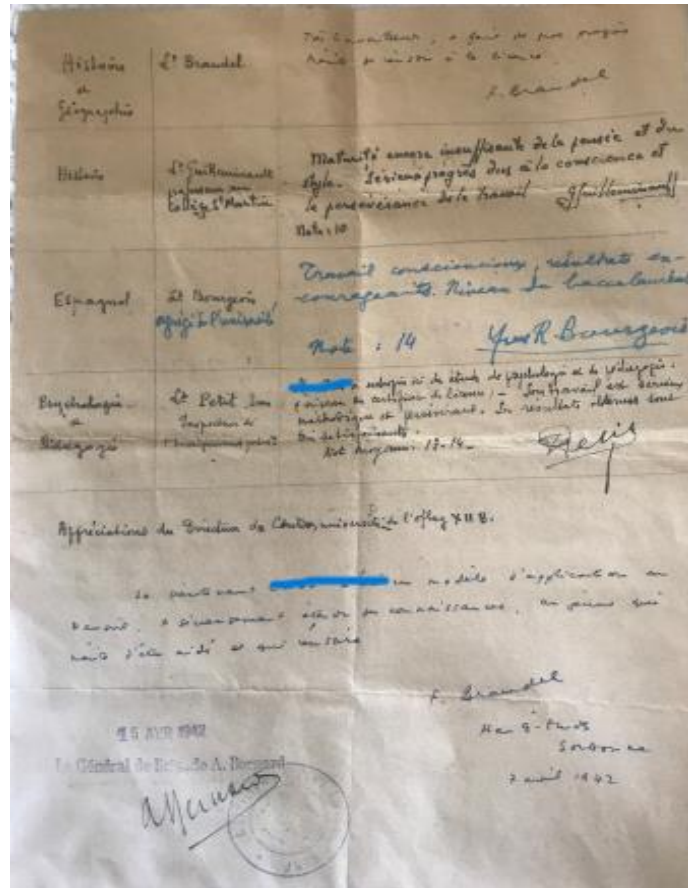 Histoire
et
Géographie
Lt Braudel
Très bon travailleur, a fait de gros progrès
F. Braudel
Histoire
Lt Guilleminault
professeur au
Collège St Martin
Maturité encore insuffisante de la pensée et du
style. Sérieux progrès dus à la conscience et
la persévérance de le travail
Note : 10
Espagnol
Lt Bourgeois
agrégé de l'université
Travail consciencieux, résultats en-
courageants. Niveau du baccalauréat
Note : 14
Yves R. Bourgeois
Psychologie
et
Pédagogie
Lt Petit
Inspecteur de
l'enseignement
études de psychologie et de pédagogie.
Son travail est sérieux
méthodique et persévérant. Les résultats obtenus sont
très satisfaisants.
Note moyenne : 13-14
Petit
Appréciations du Directeur du Centre universitaire de l'oflag XII B.
Le lieutenant un modèle d'application au
devoir, a sérieusement étendu ses connaissances,
F. Braudel
Sorbonne
7 avril 1942
15 AVR 1942
Le Général de Brigade A. Bernard
ABernard